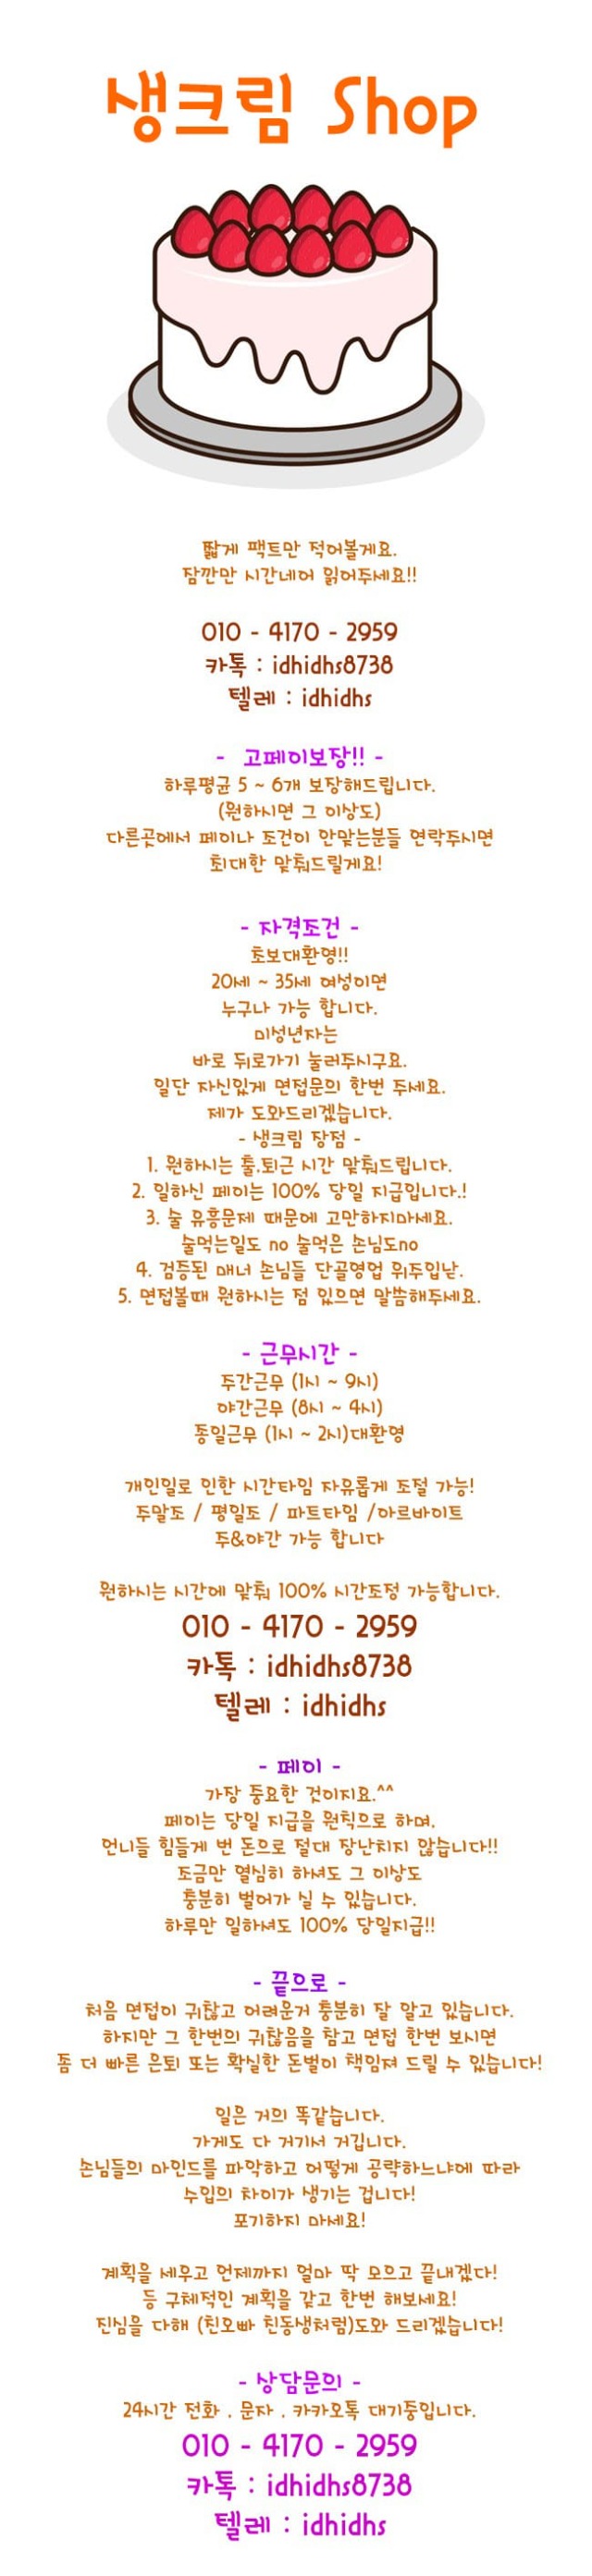 생크림 Shop
짧게 팩트만 적어볼게요.
잠깐만 시간내어 읽어주세요!!
010 - 4170 - 2959
카톡 : idhidhs8738
텔레 : idhidhs
- 고페이보장!! -
하루평균 5 ~ 6개 보장해드립니다.
(원하시면 그 이상도)
다른곳에서 페이나 조건이 안맞는분들 연락주시면
최대한 맞춰드릴게요!
- 자격조건 -
초보대환영!!
20세 ~ 35세 여성이면
누구나 가능 합니다.
미성년자는
바로 뒤로가기 눌러주시구요.
일단 자신있게 면접문의 한번 주세요.
제가 도와드리겠습니다.
- 생크림 장점 -
1. 원하시는 출.퇴근 시간 맞춰드립니다.
2. 일하신 페이는 100% 당일 지급입니다.!
3. 술 유흥문제 때문에 고만하지마세요.
술먹는일도 no 술먹은 손님도no
4. 검증된 매너 손님들 단골영업 위주입낟.
5. 면접볼때 원하시는 점 있으면 말씀해주세요.
- 근무시간 -
주간근무 (1시 ~ 9시)
야간근무 (8시 ~ 4시)
종일근무 (1시 ~ 2시)대환영
개인일로 인한 시간타임 자유롭게 조절 가능!
주말조 / 평일조 / 파트타임 /아르바이트
주&야간 가능 합니다
원하시는 시간에 맞춰 100% 시간조정 가능합니다.
010 - 4170 - 2959
카톡 : idhidhs8738
텔레 : idhidhs
- 페이 -
가장 중요한 것이지요.^^
페이는 당일 지급을 원칙으로 하며,
언니들 힘들게 번 돈으로 절대 장난치지 않습니다!!
조금만 열심히 하셔도 그 이상도
충분히 벌어가 실 수 있습니다.
하루만 일하셔도 100% 당일지급!!
- 끝으로 -
처음 면접이 귀찮고 어려운거 충분히 잘 알고 있습니다.
하지만 그 한번의 귀찮음을 참고 면접 한번 보시면
좀 더 빠른 은퇴 또는 확실한 돈벌이 책임져 드릴 수 있습니다!
일은 거의 똑같습니다.
가게도 다 거기서 거깁니다.
손님들의 마인드를 파악하고 어떻게 공략하느냐에 따라
수입의 차이가 생기는 겁니다!
포기하지 마세요!
계획을 세우고 언제까지 얼마 딱 모으고 끝내겠다!
등 구체적인 계획을 갖고 한번 해보세요!
진심을 다해 (친오빠 친동생처럼)도와 드리겠습니다!
- 상담문의 -
24시간 전화 . 문자 . 카카오톡 대기중입니다.
010 - 4170 - 2959
카톡 : idhidhs8738
텔레 : idhidhs